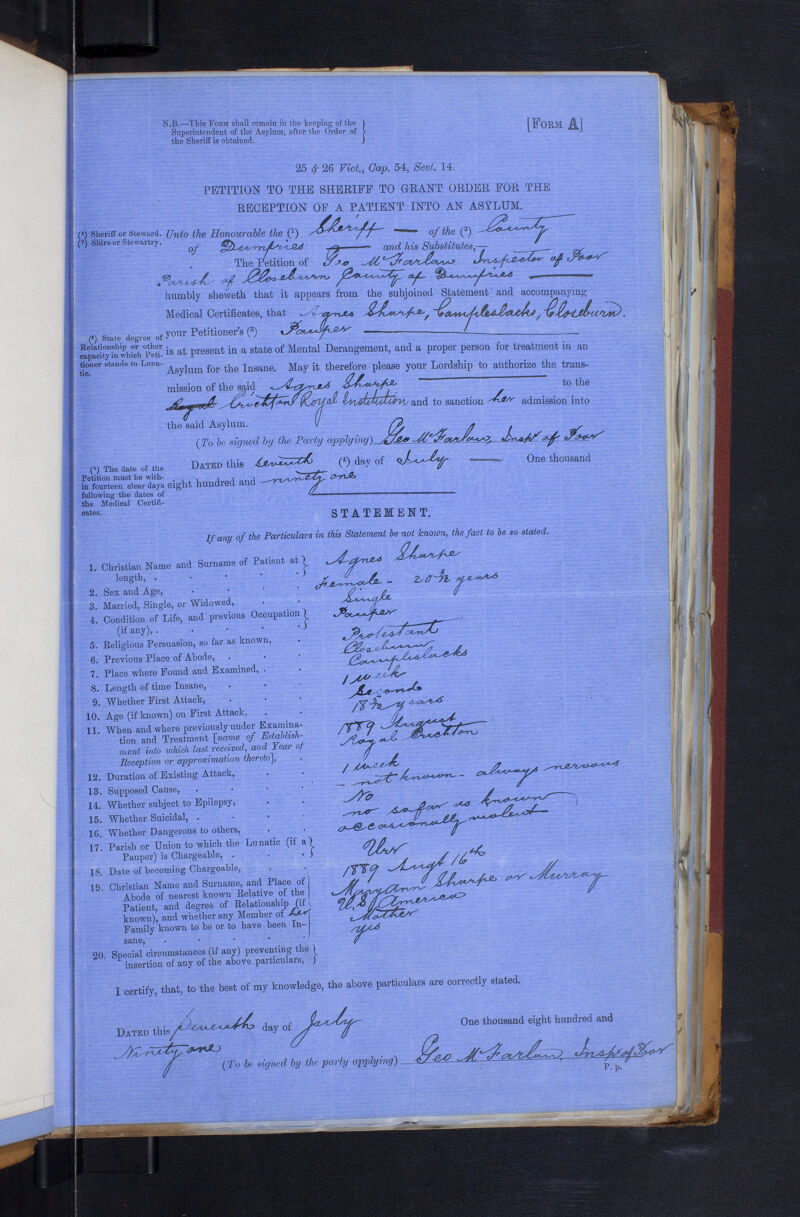 N.B.—This Form shall remain in the keeping of the
Superintendent of the Asylum, after the Order of
the Sheriff is obtained.
[Form A]
25 & 26 Vict., Cap. 54, Sect. 14.
PETITION TO THE SHERIFF TO GRANT ORDER FOR THE
RECEPTION OF A PATIENT INTO AN ASYLUM.
(1) Sheriff or Steward.
(2) Shire or Stewartry.
Unto the Honourable the (1) Sheriff — of the (2) County
of Dumfries — and his Substitutes,
The Petition of Geo McFarlane Inspector of Poor
Parish of Closeburn County of Dumfries —
humbly sheweth that it appears from the subjoined Statement and accompanying
Medical Certificates, that Agnes Sharpe, Campleslacks, Closeburn.
(3) State degree of
Relationship or other
capacity in which Peti-
tioner stands to Luna-
tic.
your Petitioner's (3) Pauper —
is at present in a state of Mental Derangement, and a proper person for treatment in an
Asylum for the Insane. May it therefore please your Lordship to authorize the trans-
mission of the said Agnes Sharpe — to the
Royal Crichton Royal Institution and to sanction her admission into
the said Asylum.
(To be signed by the Party applying) Geo McFarlane, Inspr of Poor
(4) The date of the
Petition must be with-
in fourteen clear days
following the dates of
the Medical Certifi-
cates.
Dated this seventh (4) day of July — One thousand
eight hundred and ninety one
STATEMENT.
If any of the Particulars in this Statement be not known, the fact to be so stated.
1. Christian Name and Surname of Patient at
length, . Agnes Sharpe
2. Sex and Age, Female - 20 3/12 years
3. Married, Single, or Widowed, Single
4. Condition of Life, and previous Occupation
(if any), . Pauper
5. Religious Persuasion, so far as known, Protestant
6. Previous Place of Abode, . Closeburn
7. Place where Found and Examined, . Campleslacks
8. Length of time Insane, 1 week
9. Whether First Attack, Second
10. Age (if known) on First Attack, 18 5/12 years
11. When and where previously under Examina-
tion and Treatment [name of Establish-
ment into which last received, and Year of
Reception or approximation thereto], 1889 August
Royal Crichton
12. Duration of Existing Attack, 1 week
13. Supposed Cause, - not known - always nervous
14. Whether subject to Epilepsy, No
15. Whether Suicidal, . no so far as known
16. Whether Dangerous to others, occasionally violent
17. Parish or Union to which the Lunatic (if a
Pauper) is Chargeable, . Urr
18. Date of becoming Chargeable, 1889 Augt 16th
19. Christian Name and Surname, and Place of
Abode of nearest known Relative of the
Patient, and degree of Relationship (if
known), and whether any Member of her
Family known to be or to have been In-
sane, Mary Ann Sharpe or Murray
U.S. America
Mother
yes
20. Special circumstances (if any) preventing the
insertion of any of the above particulars,
I certify, that, to the best of my knowledge, the above particulars are correctly stated.
Dated this Seventh day of July One thousand eight hundred and
Ninety one
(To be signed by the party applying) Geo McFarlane. Inspr of Poor
P. p.